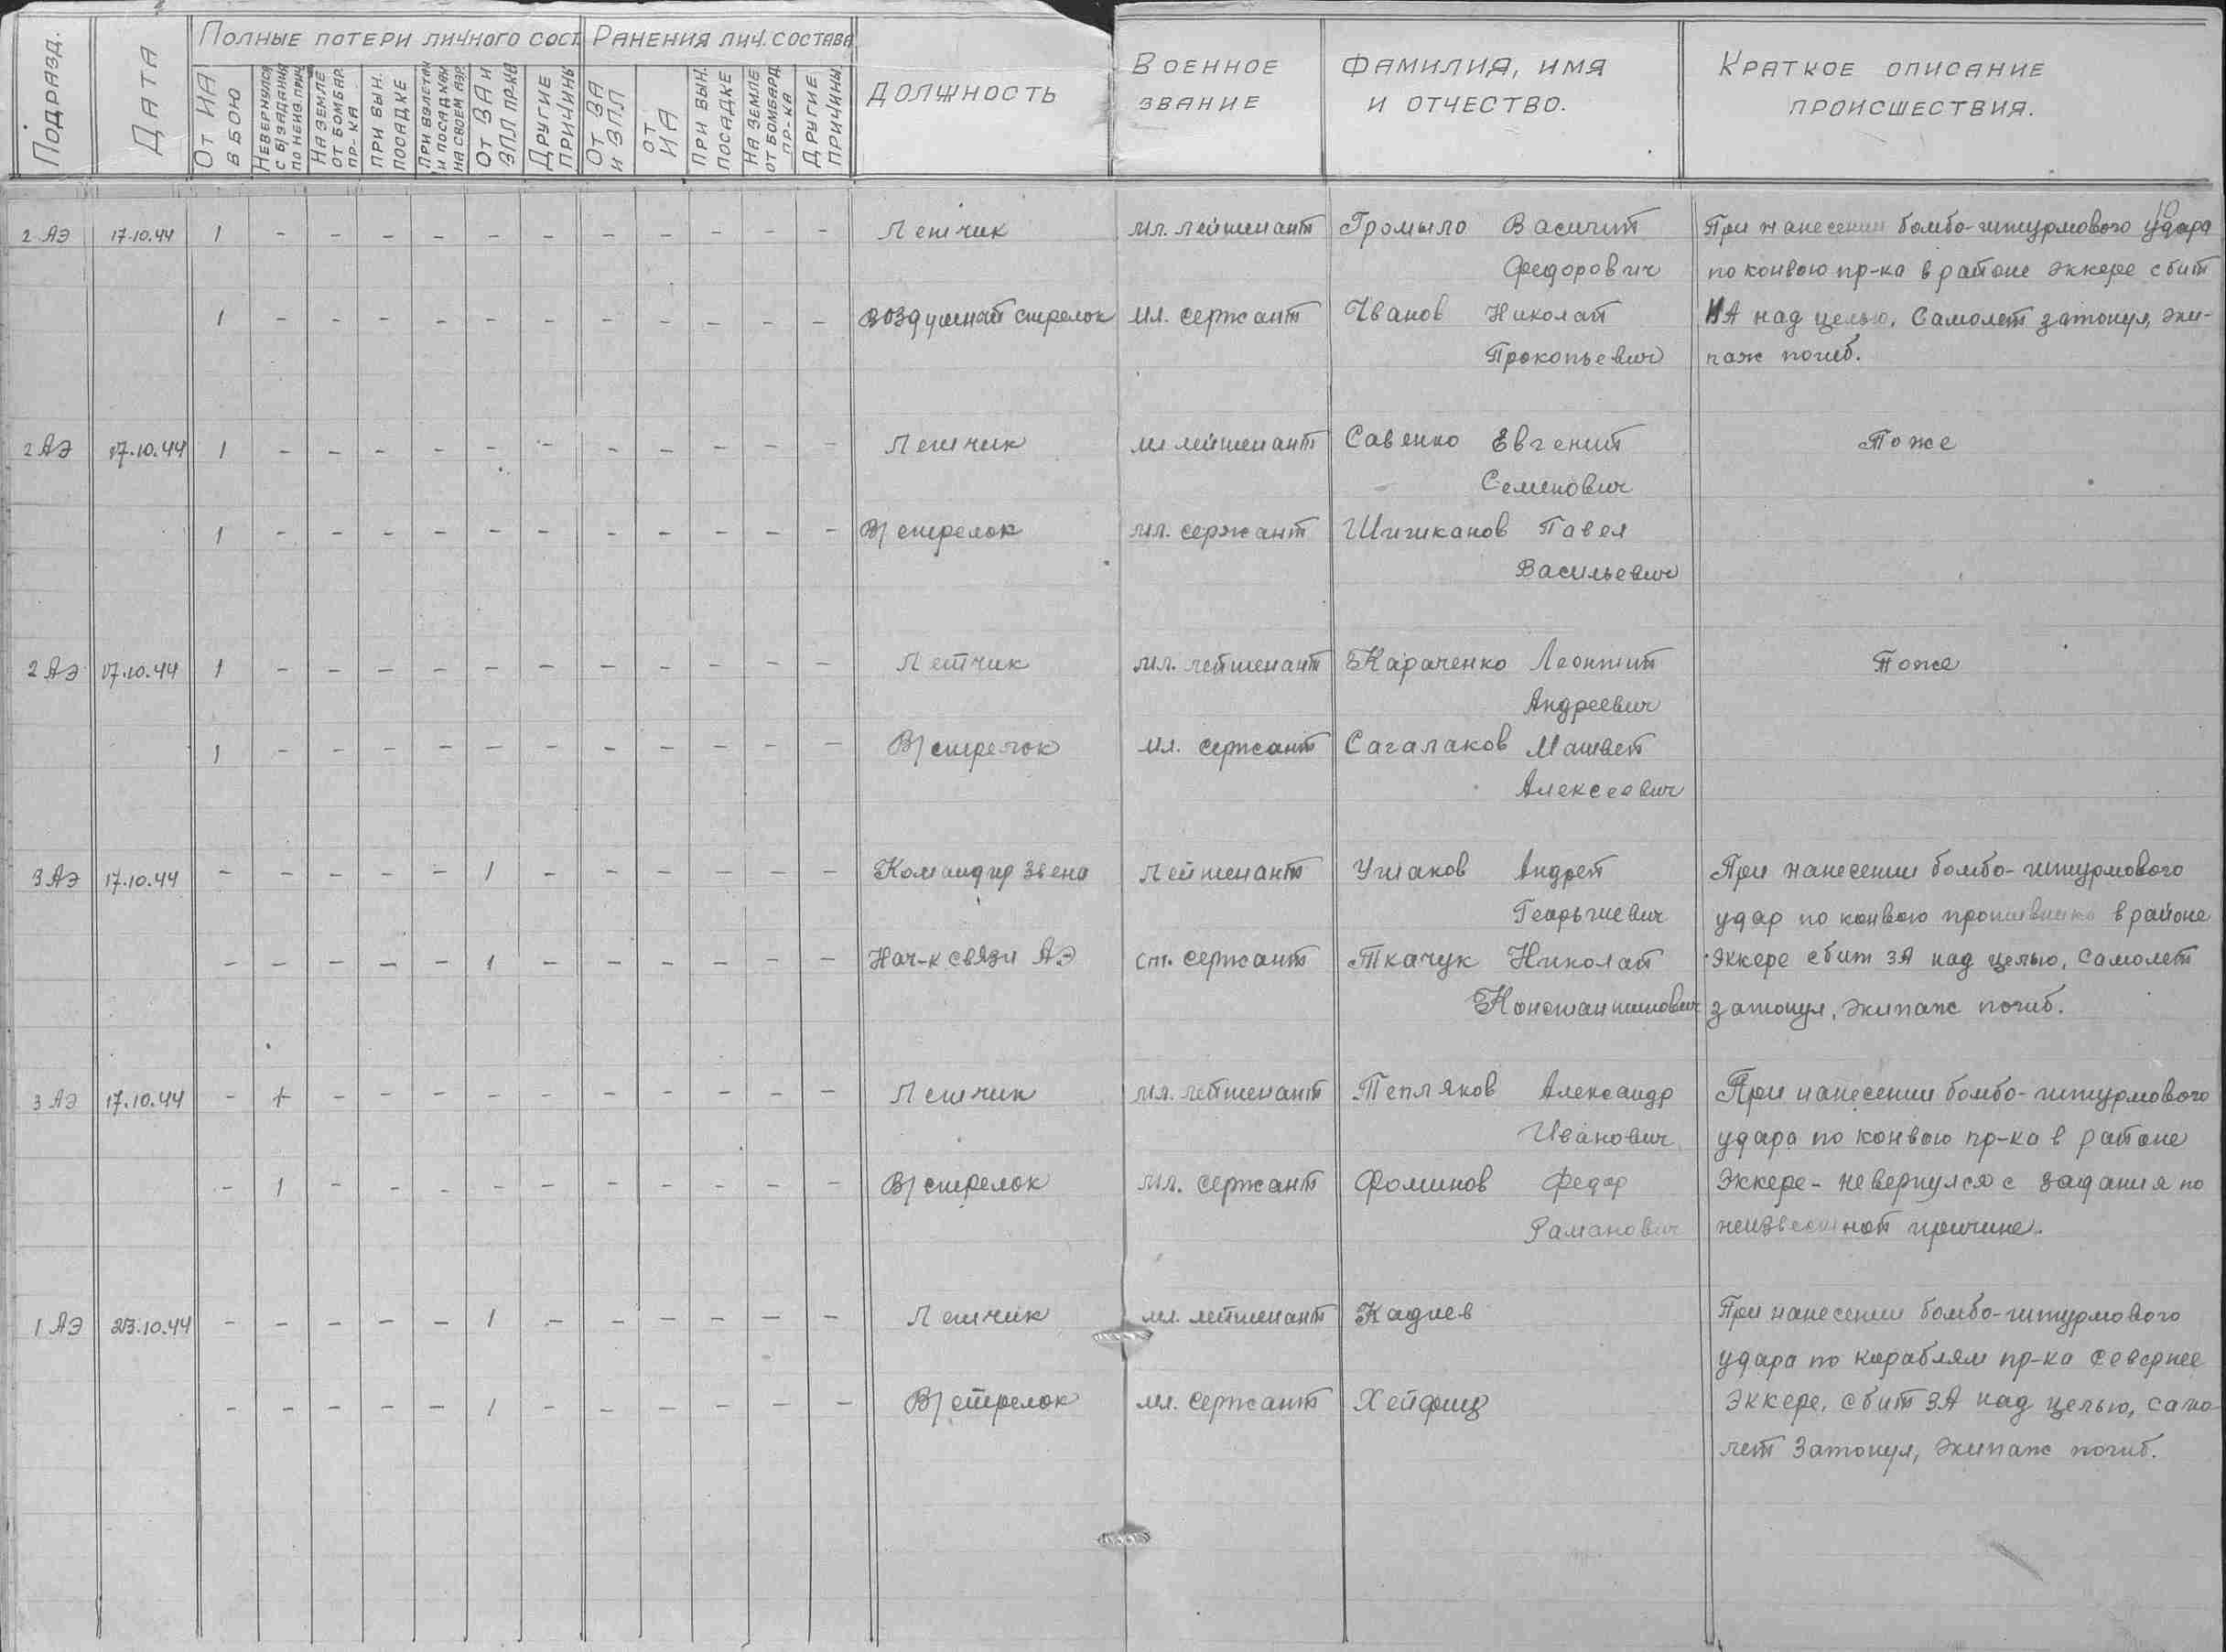 Подразд.
Дата
Полные потери личного сост.
Ранения лич. состава
От ИА в бою
Невернулся с б/задания по неизв. прич.
На земле от бомбар. пр-ка
При вын. посадке
При взлетах и посадках на своем аэр.
От ЗА и ЗПЛ пр-ка
Другие причины
От ЗА и ЗПЛ
От ИА
При вын. посадке
На земле от бомбард. пр-ка
Другие причины
Должность
Военное звание
Фамилия, имя и отчество.
Краткое описание происшествия.
2 АЭ 17.10.44 1 - - - - - - - - - - - Летчик мл. лейтенант Громыло Василий При нанесении бомбо-штурмового удара
Федорович по конвою пр-ка в районе Эккере сбит
1 - - - - - - - - - - - Воздушный стрелок мл. сержант Иванов Николай ИА над целью, Самолет затонул, эки-
Прокопьевич паж погиб.
2 АЭ 17.10.44 1 - - - - - - - - - - - Летчик мл лейтенант Савенко Евгений Тоже
Семенович
1 - - - - - - - - - - - В/стрелок мл. сержант Шишканов Павел
Васильевич
2 АЭ 17.10.44 1 - - - - - - - - - - - Летчик мл. лейтенант Караченко Леонтий Тоже
Андреевич
1 - - - - - - - - - - - В/стрелок мл. сержант Сагалаков Матвей
Алексеевич
3 АЭ 17.10.44 - - - - - 1 - - - - - - Командир звена лейтенант Ушаков Андрей При нанесении бомбо-штурмового
Георгиевич удар по конвою противника в районе
- - - - - 1 - - - - - - Нач-к связи АЭ ст. сержант Ткачук Николай Эккере сбит ЗА над целью, самолет
Константинович затонул, экипаж погиб.
3 АЭ 17.10.44 - 1 - - - - - - - - - - Летчик мл. лейтенант Тепляков Александр При нанесении бомбо-штурмового
Иванович удара по конвою пр-ка в районе
- 1 - - - - - - - - - - В/стрелок мл. сержант Фоминов Федор Эккере - невернулся с задания по
Раманович неизвестной причине.
1 АЭ 23.10.44 - - - - - 1 - - - - - - Летчик мл. лейтенант Кадиев При нанесении бомбо-штурмового
удара по кораблям пр-ка севернее
- - - - - 1 - - - - - - В/стрелок мл. сержант Хейфиц Эккере, сбит ЗА над целью, само-
лет затонул, экипаж погиб.